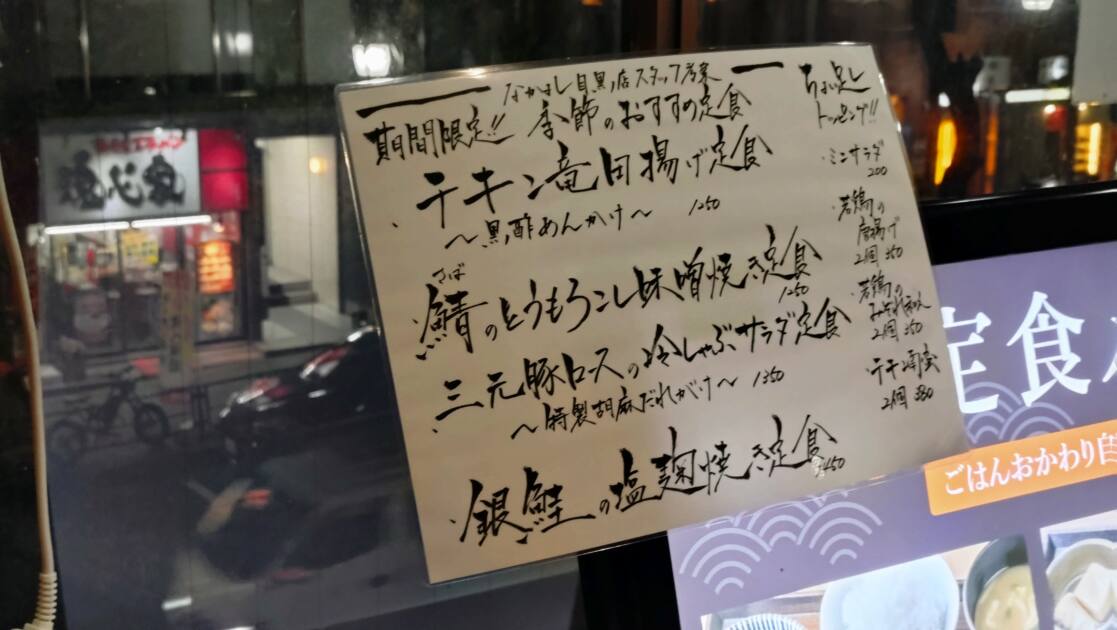 なかよし目黒店スタッフ考案
期間限定!! 季節のおすすめ定食
・チキン竜田揚げ定食
～黒酢あんかけ～ 1250
さば
・鯖のとうもろこし味噌焼き定食
1250
・三元豚ロスの冷しゃぶサラダ定食
～特製胡麻だれがけ～ 1350
・銀鮭の塩麹焼き定食
1450
ちょい足し
トッピング!!
・ミニサラダ
200
・若鶏の
唐揚げ
2個 350
・若鶏の
みぞれ和え
2個 350
・チキン南蛮
2個 380
定食
ごはんおかわり自